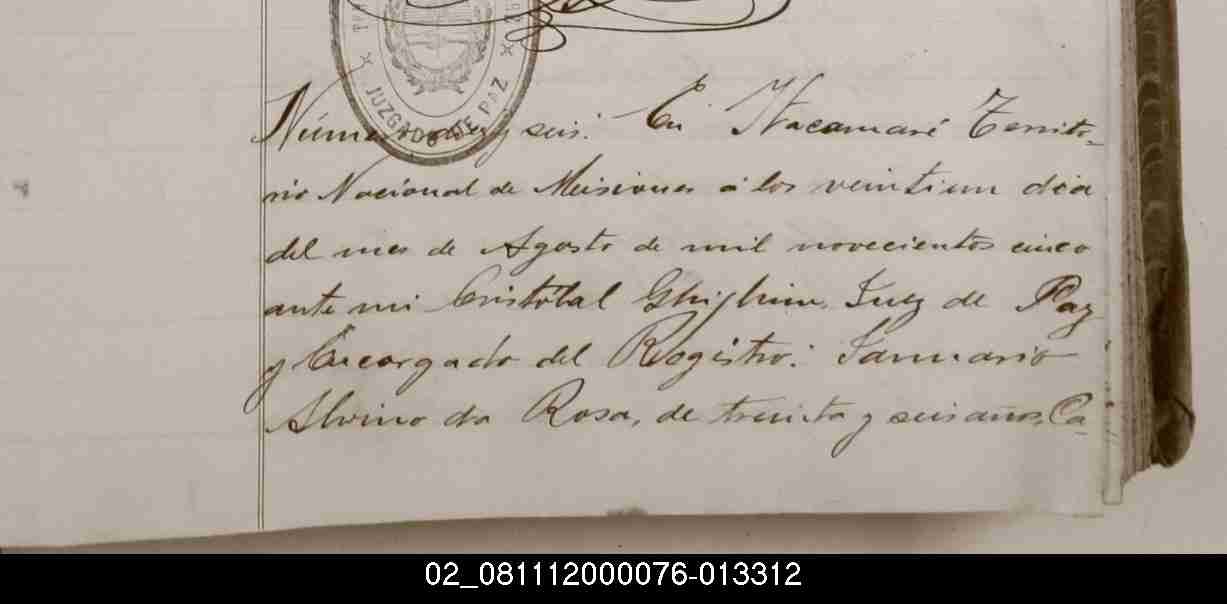 JUZGADO DE PAZ
Número diez y seis. En Itacaruaré Territo-
rio Nacional de Misiones á los veintiun dia
del mes de Agosto de mil novecientos cinco
ante mi Cristóbal Juez de Paz
y Encargado del Registro: Januario
Alvino da Rosa, de treinta y seis años, Ca-
02_081112000076-013312